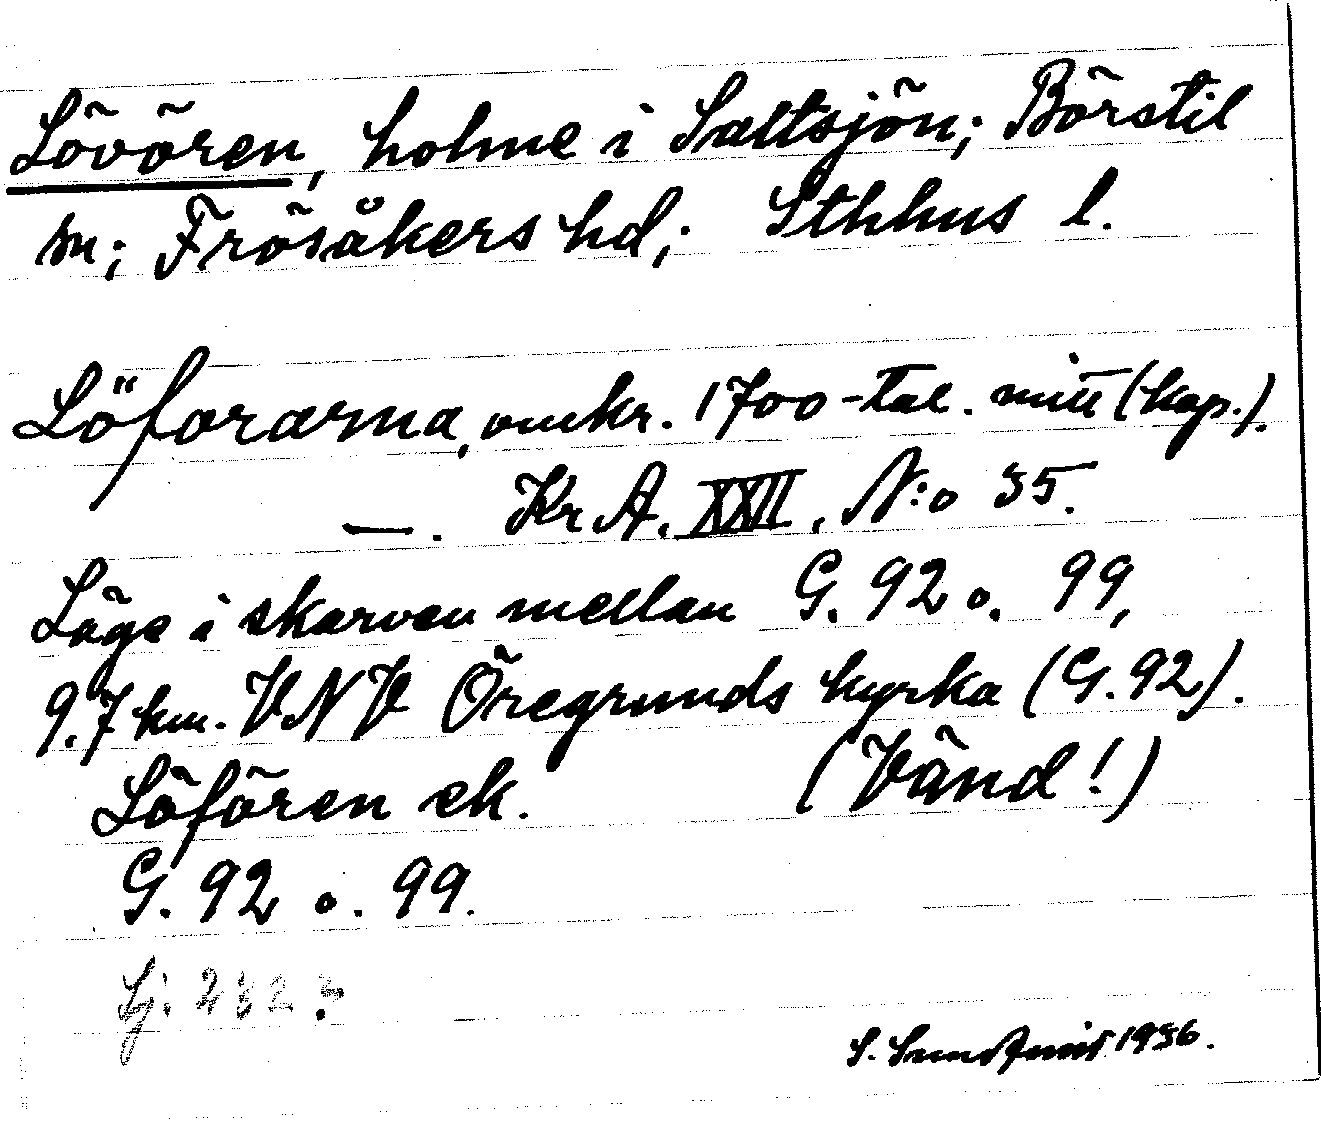 Lövören, holme i Saltsjön; Börstil
sn; Frösåkers hd; Sthlms l.
Löförarna, omkr. 1700-tal. mitt (kop.).
—. Kr A. XXII, N:o 35.
Läge i skarven mellan G. 92 o. 99,
9.7 km. VNV Öregrunds kyrka (G. 92).
Löfören ek. (Vänd!)
G. 92 o. 99.
Sj. 232
S. 1936.